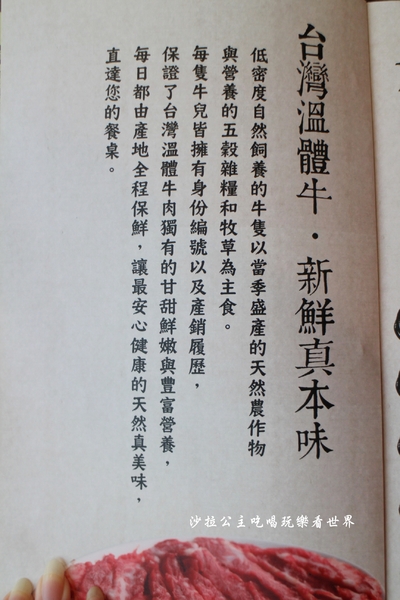 台灣溫體牛・新鮮真本味
低密度自然飼養的牛隻以當季盛產的天然農作物
與營養的五穀雜糧和牧草為主食。
每隻牛兒皆擁有身份編號以及產銷履歷，
保證了台灣溫體牛肉獨有的甘甜鮮嫩與豐富營養，
每日都由產地全程保鮮，讓最安心健康的天然真美味，
直達您的餐桌。
沙拉公主吃喝玩樂看世界